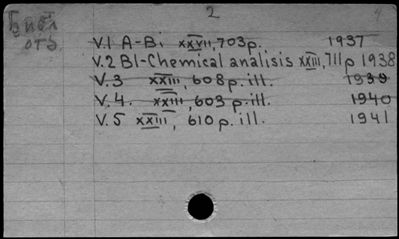 2
Библ
отд
V.1 A-Bi xxvii, 703p. 1937
V.2 BI-Chemical analisis xxiii, 711p 1938
V.3 xxiii, 608p. ill. 1939
V.4. xxiii, 603p. ill. 1940
V.5 xxiii, 610p. ill. 1941